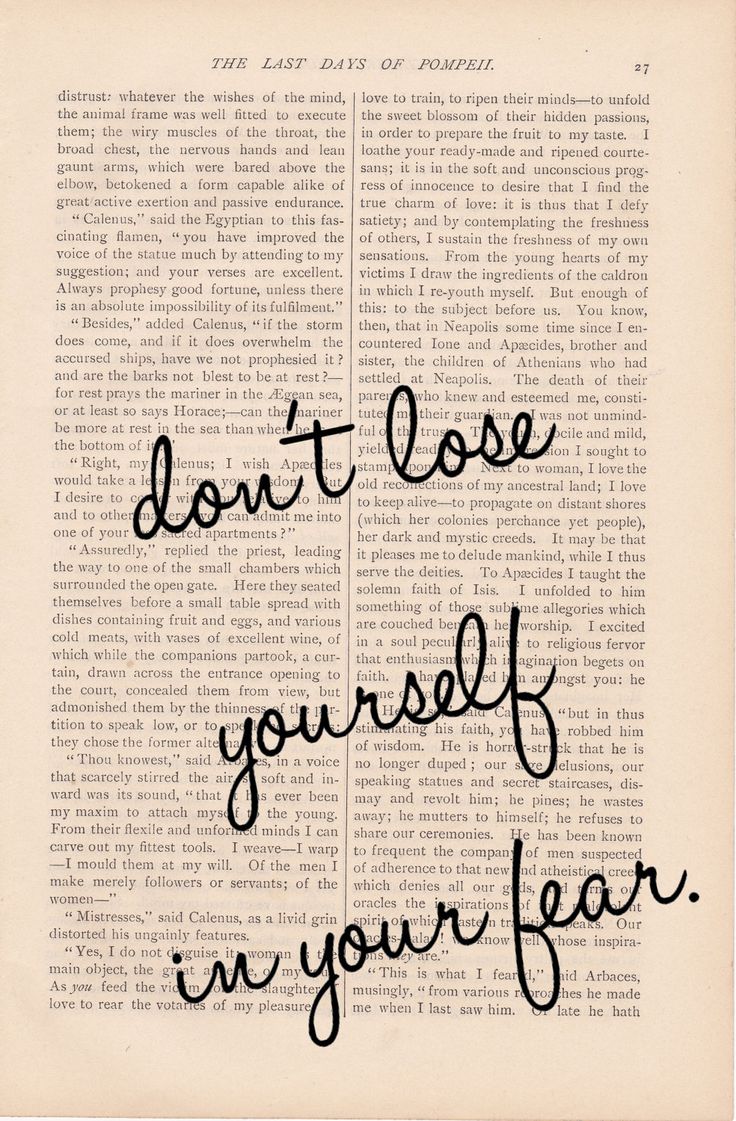 THE LAST DAYS OF POMPEII.
27
distrust: whatever the wishes of the mind,
the animal frame was well fitted to execute
them; the wiry muscles of the throat, the
broad chest, the nervous hands and lean
gaunt arms, which were bared above the
elbow, betokened a form capable alike of
great active exertion and passive endurance.
“Calenus,” said the Egyptian to this fas-
cinating flamen, “you have improved the
voice of the statue much by attending to my
suggestion; and your verses are excellent.
Always prophesy good fortune, unless there
is an absolute impossibility of its fulfilment.”
“Besides,” added Calenus, “if the storm
does come, and if it does overwhelm the
accursed ships, have we not prophesied it?
and are the barks not blest to be at rest?—
for rest prays the mariner in the Ægean sea,
or at least so says Horace;—can the mariner
be more at rest in the sea than when he
the bottom of
“Right, my Calenus; I wish Apæcides
would take a lesson from your wisdom. But
I desire to to him
and to other can admit me into
one of your sacred apartments?”
“Assuredly,” replied the priest, leading
the way to one of the small chambers which
surrounded the open gate. Here they seated
themselves before a small table spread with
dishes containing fruit and eggs, and various
cold meats, with vases of excellent wine, of
which while the companions partook, a cur-
tain, drawn across the entrance opening to
the court, concealed them from view, but
admonished them by the thinness of the par-
tition to speak low, or to speak
they chose the former
“Thou knowest,” said Arbaces, in a voice
that scarcely stirred the air, so soft and in-
ward was its sound, “that it has ever been
my maxim to attach myself to the young.
From their flexile and unformed minds I can
carve out my fittest tools. I weave—I warp
—I mould them at my will. Of the men I
make merely followers or servants; of the
women—”
“Mistresses,” said Calenus, as a livid grin
distorted his ungainly features.
“Yes, I do not disguise it: woman is the
main object, the great of my
As you feed the victim for the slaughter,
love to rear the votaries of my pleasure.
love to train, to ripen their minds—to unfold
the sweet blossom of their hidden passions,
in order to prepare the fruit to my taste. I
loathe your ready-made and ripened courte-
sans; it is in the soft and unconscious prog-
ress of innocence to desire that I find the
true charm of love: it is thus that I defy
satiety; and by contemplating the freshness
of others, I sustain the freshness of my own
sensations. From the young hearts of my
victims I draw the ingredients of the caldron
in which I re-youth myself. But enough of
this: to the subject before us. You know,
then, that in Neapolis some time since I en-
countered Ione and Apæcides, brother and
sister, the children of Athenians who had
settled at Neapolis. The death of their
parents, who knew and esteemed me, consti-
tuted me their guardian. I was not unmind-
ful of the trust. The youth, docile and mild,
yielded readily I sought to
stamp upon Next to woman, I love the
old recollections of my ancestral land; I love
to keep alive—to propagate on distant shores
(which her colonies perchance yet people),
her dark and mystic creeds. It may be that
it pleases me to delude mankind, while I thus
serve the deities. To Apæcides I taught the
solemn faith of Isis. I unfolded to him
something of those sublime allegories which
are couched beneath her worship. I excited
in a soul peculiarly alive to religious fervor
that enthusiasm which imagination begets on
faith. I have placed him amongst you: he
one of
said Calenus, “but in thus
stimulating his faith, you have robbed him
of wisdom. He is horror-struck that he is
no longer duped; our sage delusions, our
speaking statues and secret staircases, dis-
may and revolt him; he pines; he wastes
away; he mutters to himself; he refuses to
share our ceremonies. He has been known
to frequent the company of men suspected
of adherence to that new and atheistical creed
which denies all our gods, and terms our
oracles the inspirations of that malevolent
spirit of which eastern tradition speaks. Our
know well whose inspira-
tions they are.”
“This is what I feared,” said Arbaces,
musingly, “from various reproaches he made
me when I last saw him. Of late he hath
don't lose
yourself
in your fear.